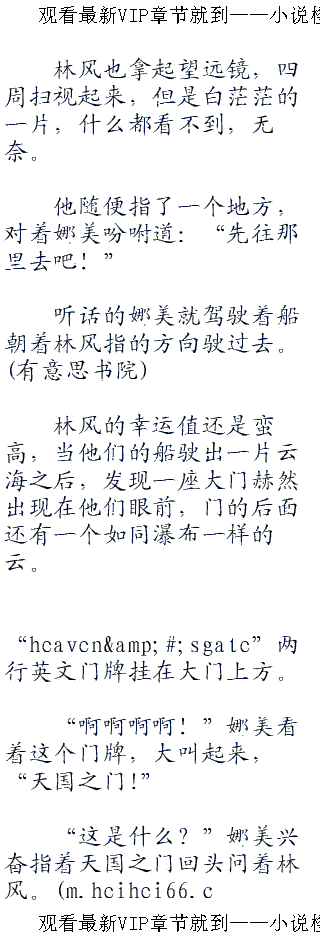 观看最新VIP章节就到——小说检
林风也拿起望远镜，四
周扫视起来，但是白茫茫的
一片，什么都看不到，无
奈。
他随便指了一个地方，
对着娜美吩咐道：“先往那
里去吧！”
听话的娜美就驾驶着船
朝着林风指的方向驶过去。
(有意思书院)
林风的幸运值还是蛮
高，当他们的船驶出一片云
海之后，发现一座大门赫然
出现在他们眼前，门的后面
还有一个如同瀑布一样的
云。
“heaven&amp;#;sgate”两
行英文门牌挂在大门上方。
“啊啊啊啊！”娜美看
着这个门牌，大叫起来，
“天国之门!”
“这是什么？”娜美兴
奋指着天国之门回头问着林
风。(m.heihei66.c
观看最新VIP章节就到——小说检